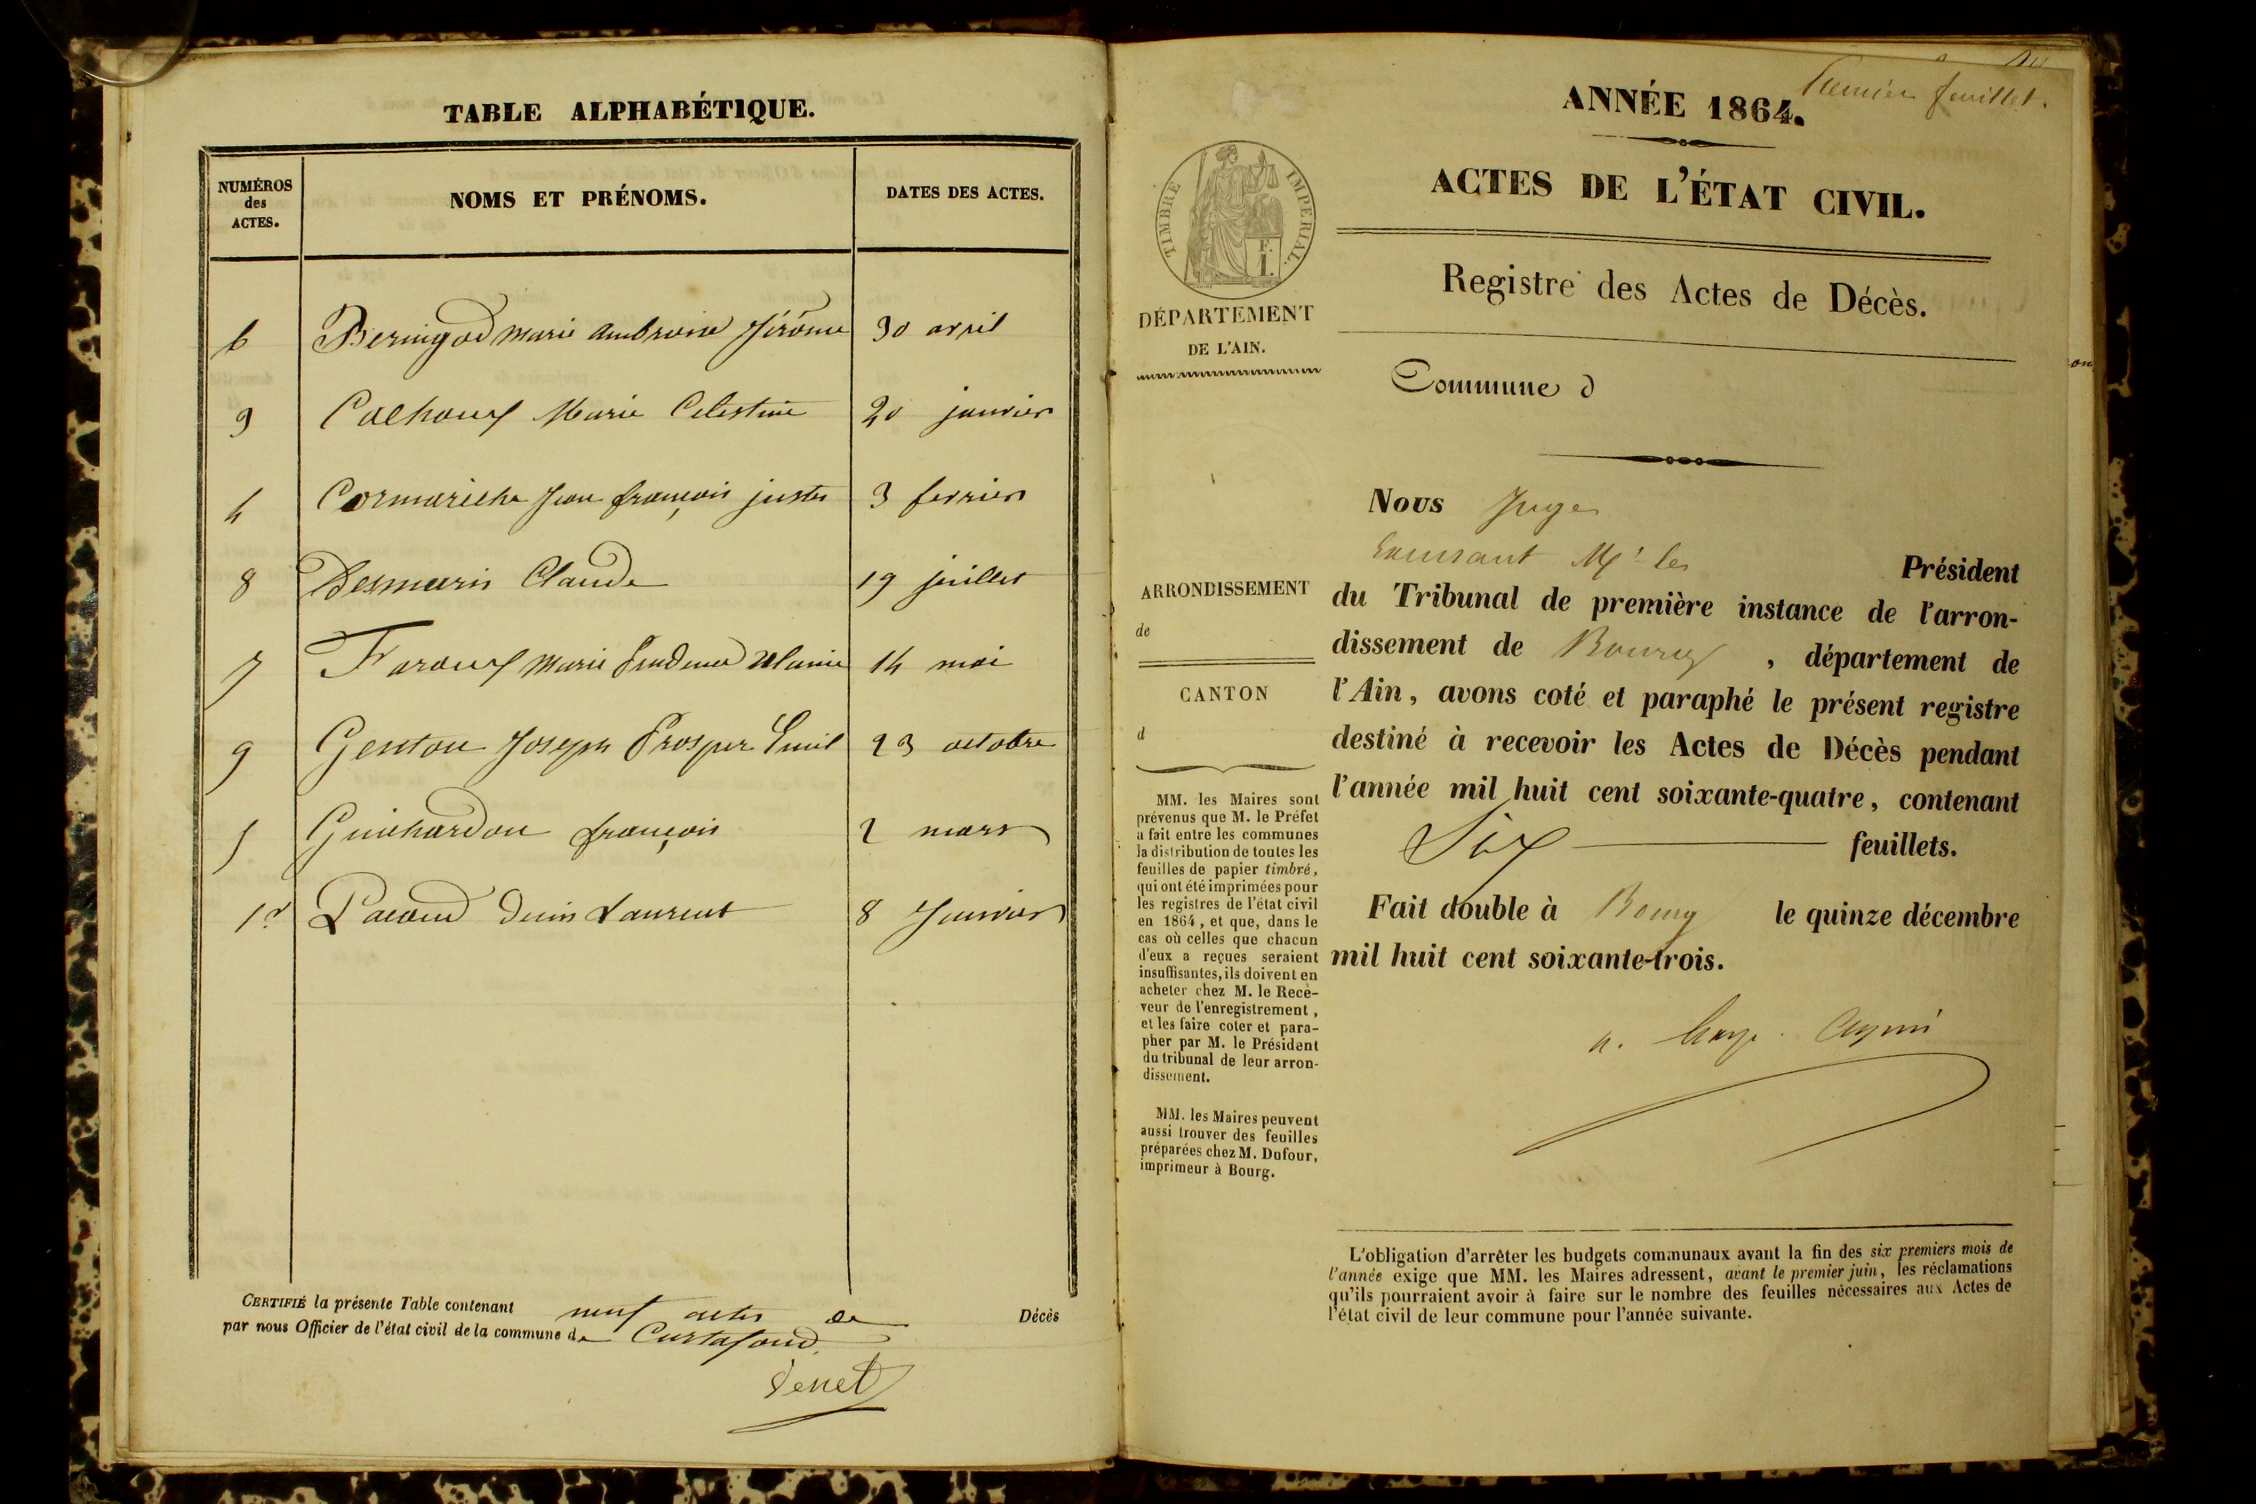 TABLE ALPHABÉTIQUE.
NUMÉROS
des
ACTES.
NOMS ET PRÉNOMS.
DATES DES ACTES.
6 Berningod marie ambroise Jérôme 30 avril
3 Marie Celestine 20 janvier
4 Cormarèche Jean françois juste 3 ferrier
8 Desmaris Claude 19 juillet
7 Faroux marie Prudence 14 mai
9 Genton Joseph Prosper Emil 23 octobre
5 Guichardon françois 2 mars
1r Pacoud Denis Laurent 8 Janvier
CERTIFIÉ la présente Table contenant neuf actes de Décès
par nous Officier de l'état civil de la commune de Curtafond.
Premier feuillet.
ANNÉE 1864.
ACTES DE L'ÉTAT CIVIL.
TIMBRE IMPERIAL.
F.
I.
DÉPARTEMENT
DE L'AIN.
Registre des Actes de Décès.
Commune d
Nous Juge
Mr le
Président
du Tribunal de première instance de l'arron-
dissement de Bourg, département de
l'Ain, avons coté et paraphé le présent registre
destiné à recevoir les Actes de Décès pendant
l'année mil huit cent soixante-quatre, contenant
Six feuillets.
Fait double à Bourg le quinze décembre
mil huit cent soixante-trois.
ARRONDISSEMENT
de
CANTON
d
MM. les Maires sont
prévenus que M. le Préfet
a fait entre les communes
la distribution de toutes les
feuilles de papier timbré,
qui ont été imprimées pour
les registres de l'état civil
en 1864, et que, dans le
cas où celles que chacun
d'eux a reçues seraient
insuffisantes, ils doivent en
acheter chez M. le Rece-
veur de l'enregistrement,
et les faire coter et para-
pher par M. le Président
du tribunal de leur arron-
dissement.
MM. les Maires peuvent
aussi trouver des feuilles
préparées chez M. Dufour,
imprimeur à Bourg.
L'obligation d'arrêter les budgets communaux avant la fin des six premiers mois de
l'année exige que MM. les Maires adressent, avant le premier juin, les réclamations
qu'ils pourraient avoir à faire sur le nombre des feuilles nécessaires aux Actes de
l'état civil de leur commune pour l'année suivante.